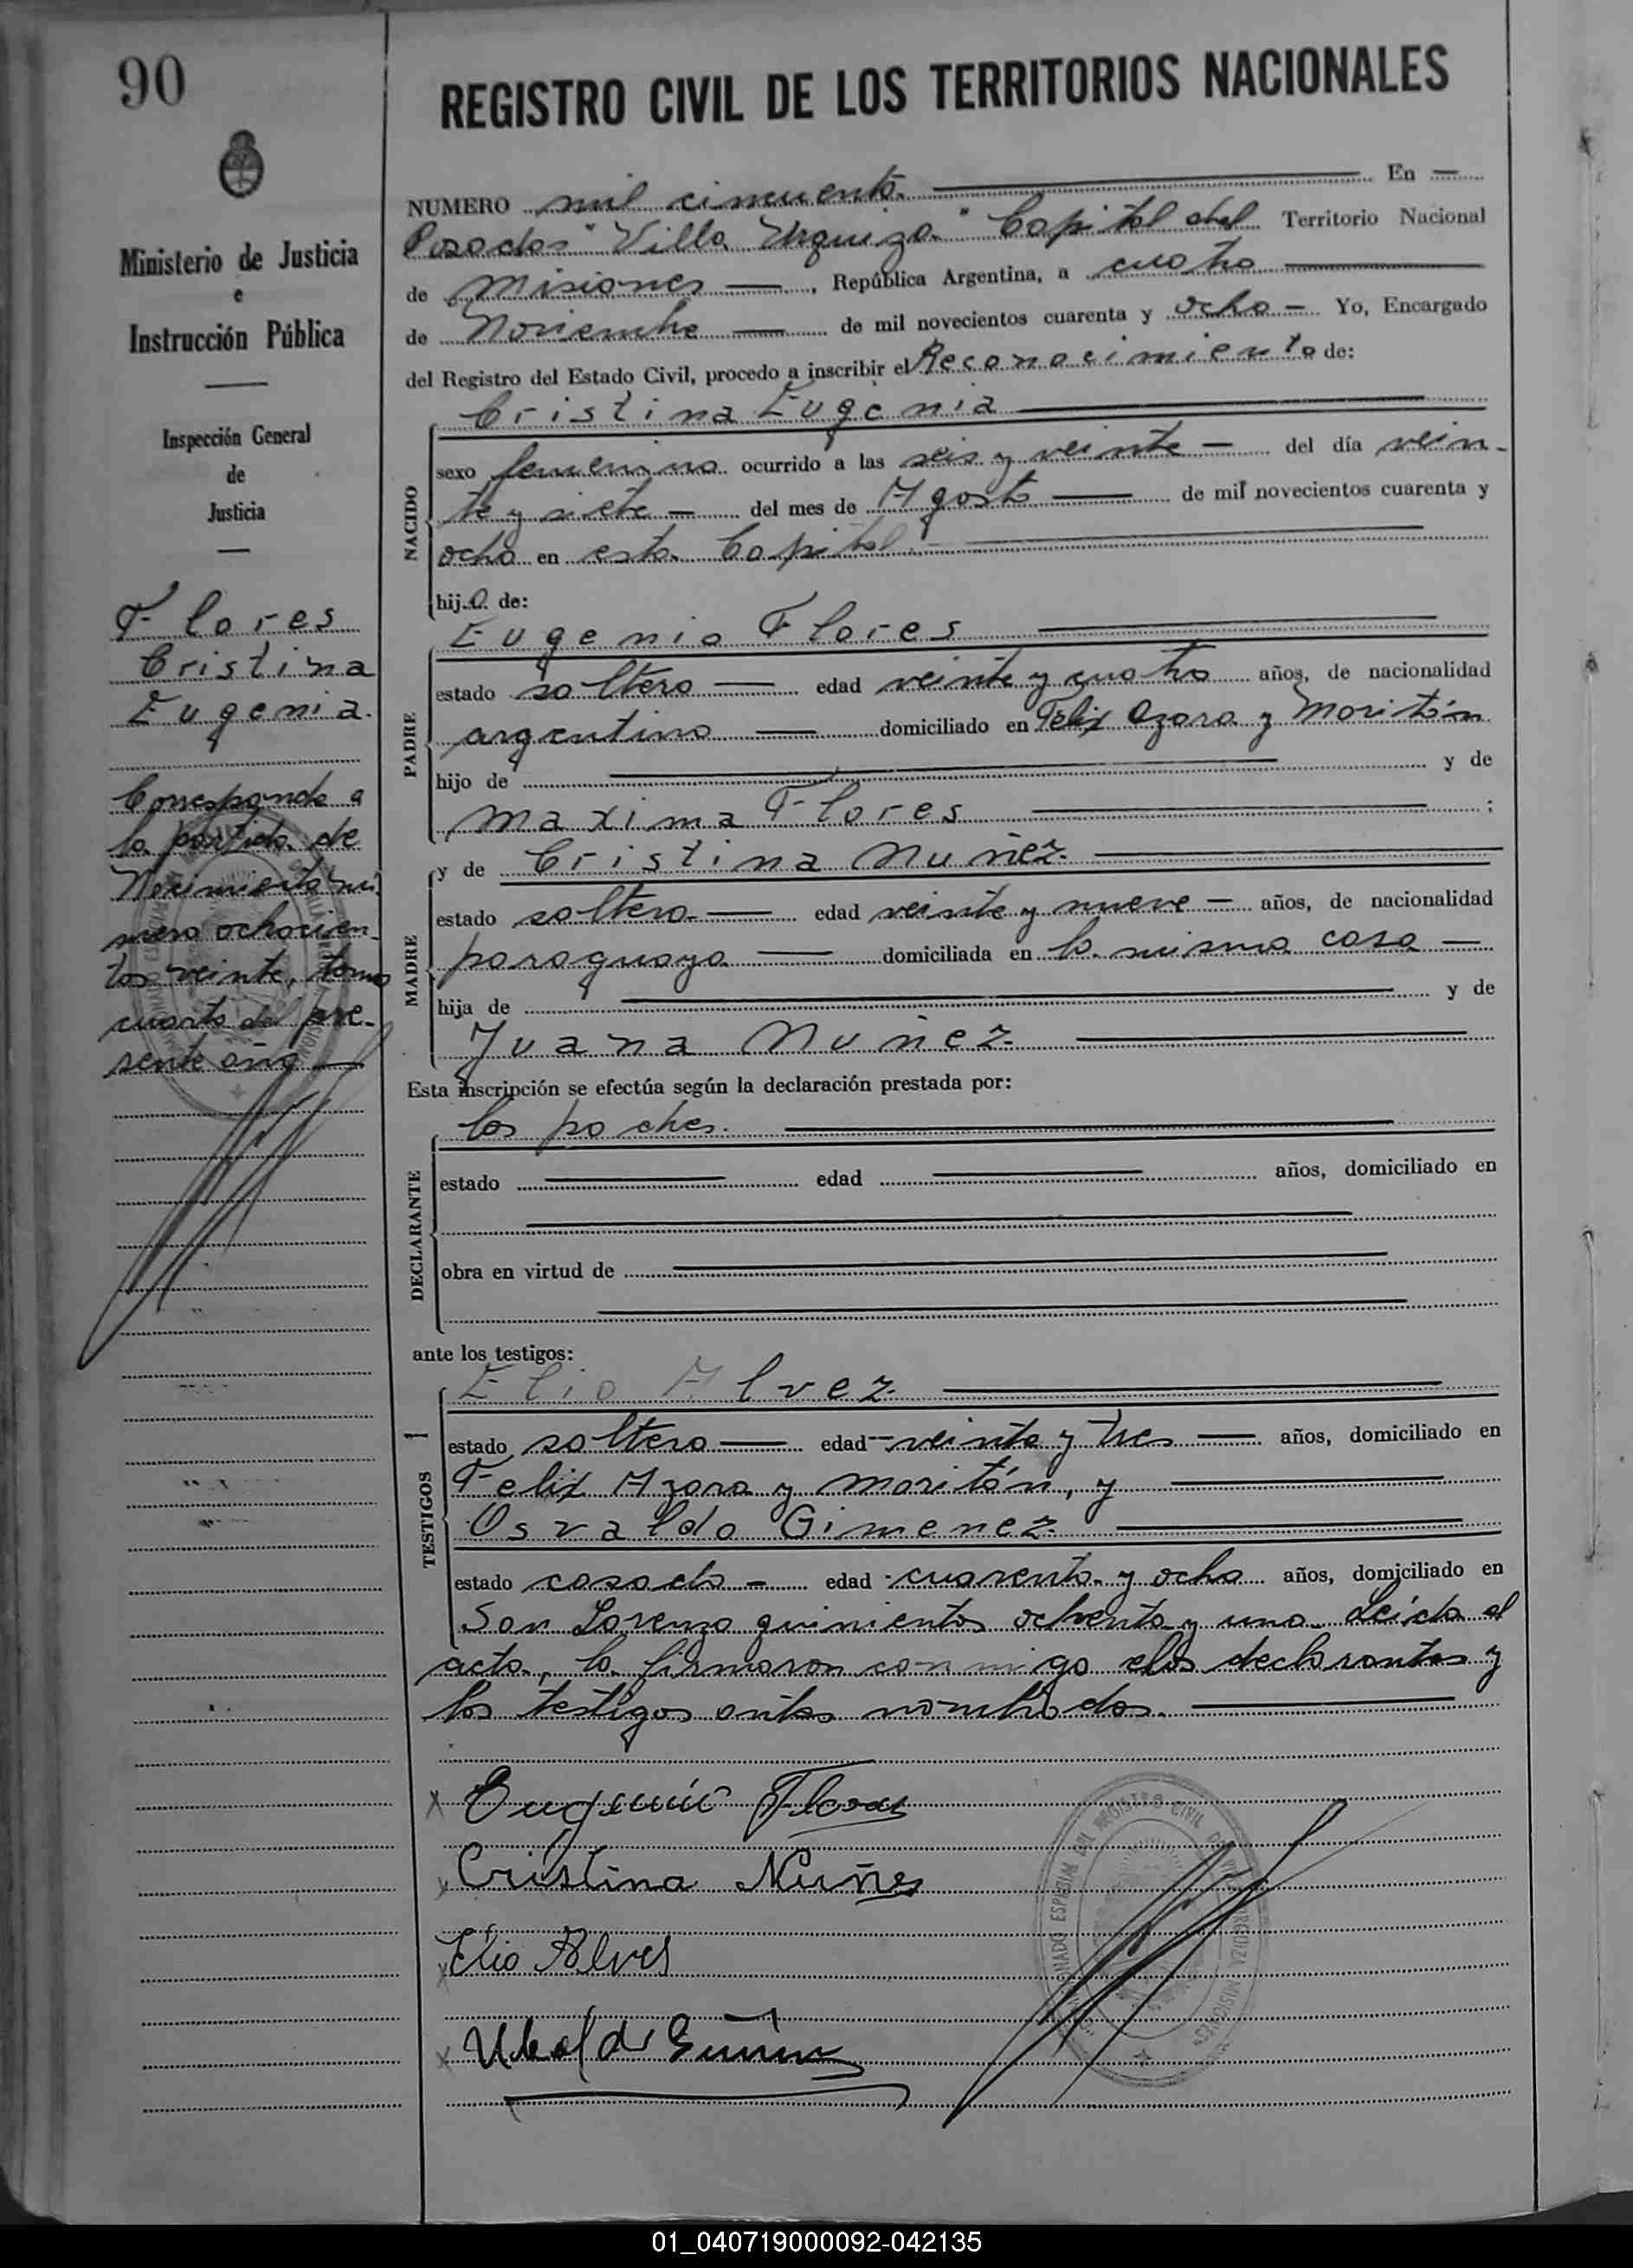 90
REGISTRO CIVIL DE LOS TERRITORIOS NACIONALES
Ministerio de Justicia
e
Instrucción Pública
Inspección General
de
Justicia
Flores
Cristina
Eugenia.
Corresponde a
la partida de
Nacimiento nú
mero ochocien-
tos veinte, tomo
cuarto del pre-
sente año
NUMERO mil cincuenta. En —
Posadas "Villa Urquiza" Capital del Territorio Nacional
de Misiones —, República Argentina, a cuatro
de Noviembre — de mil novecientos cuarenta y ocho — Yo, Encargado
del Registro del Estado Civil, procedo a inscribir el Reconocimiento de:
NACIDO
Cristina Eugenia
sexo femenino ocurrido a las seis y veinte — del día vein-
te y siete — del mes de Agosto — de mil novecientos cuarenta y
ocho en esta Capital.
hija de:
PADRE
Eugenio Flores
estado soltero — edad veinte y cuatro años, de nacionalidad
argentino — domiciliado en Félix Azara y Moritán
hijo de — y de
Maxima Flores — ;
MADRE
y de Cristina Nuñez.
estado soltera — edad veinte y nueve — años, de nacionalidad
paraguaya — domiciliada en la misma casa —
hija de — y de
Juana Nuñez.
Esta inscripción se efectúa según la declaración prestada por:
DECLARANTE
los padres.
estado — edad — años, domiciliado en
obra en virtud de
ante los testigos:
TESTIGOS
Elio Alvez
estado soltero — edad veinte y tres — años, domiciliado en
Felix Azara y Moritán, y
Osvaldo Gimenez.
estado casado — edad cuarenta y ocho años, domiciliado en
San Lorenzo quinientos ochenta y uno. Leída el
acta, la firmaron conmigo los declarantes y
los testigos antes nombrados.
x Eugenio Flores
x Cristina Nuñes
x Elio Alves
x
REGISTRO CIVIL DE
URQUIZA MISIONES
01_040719000092-042135